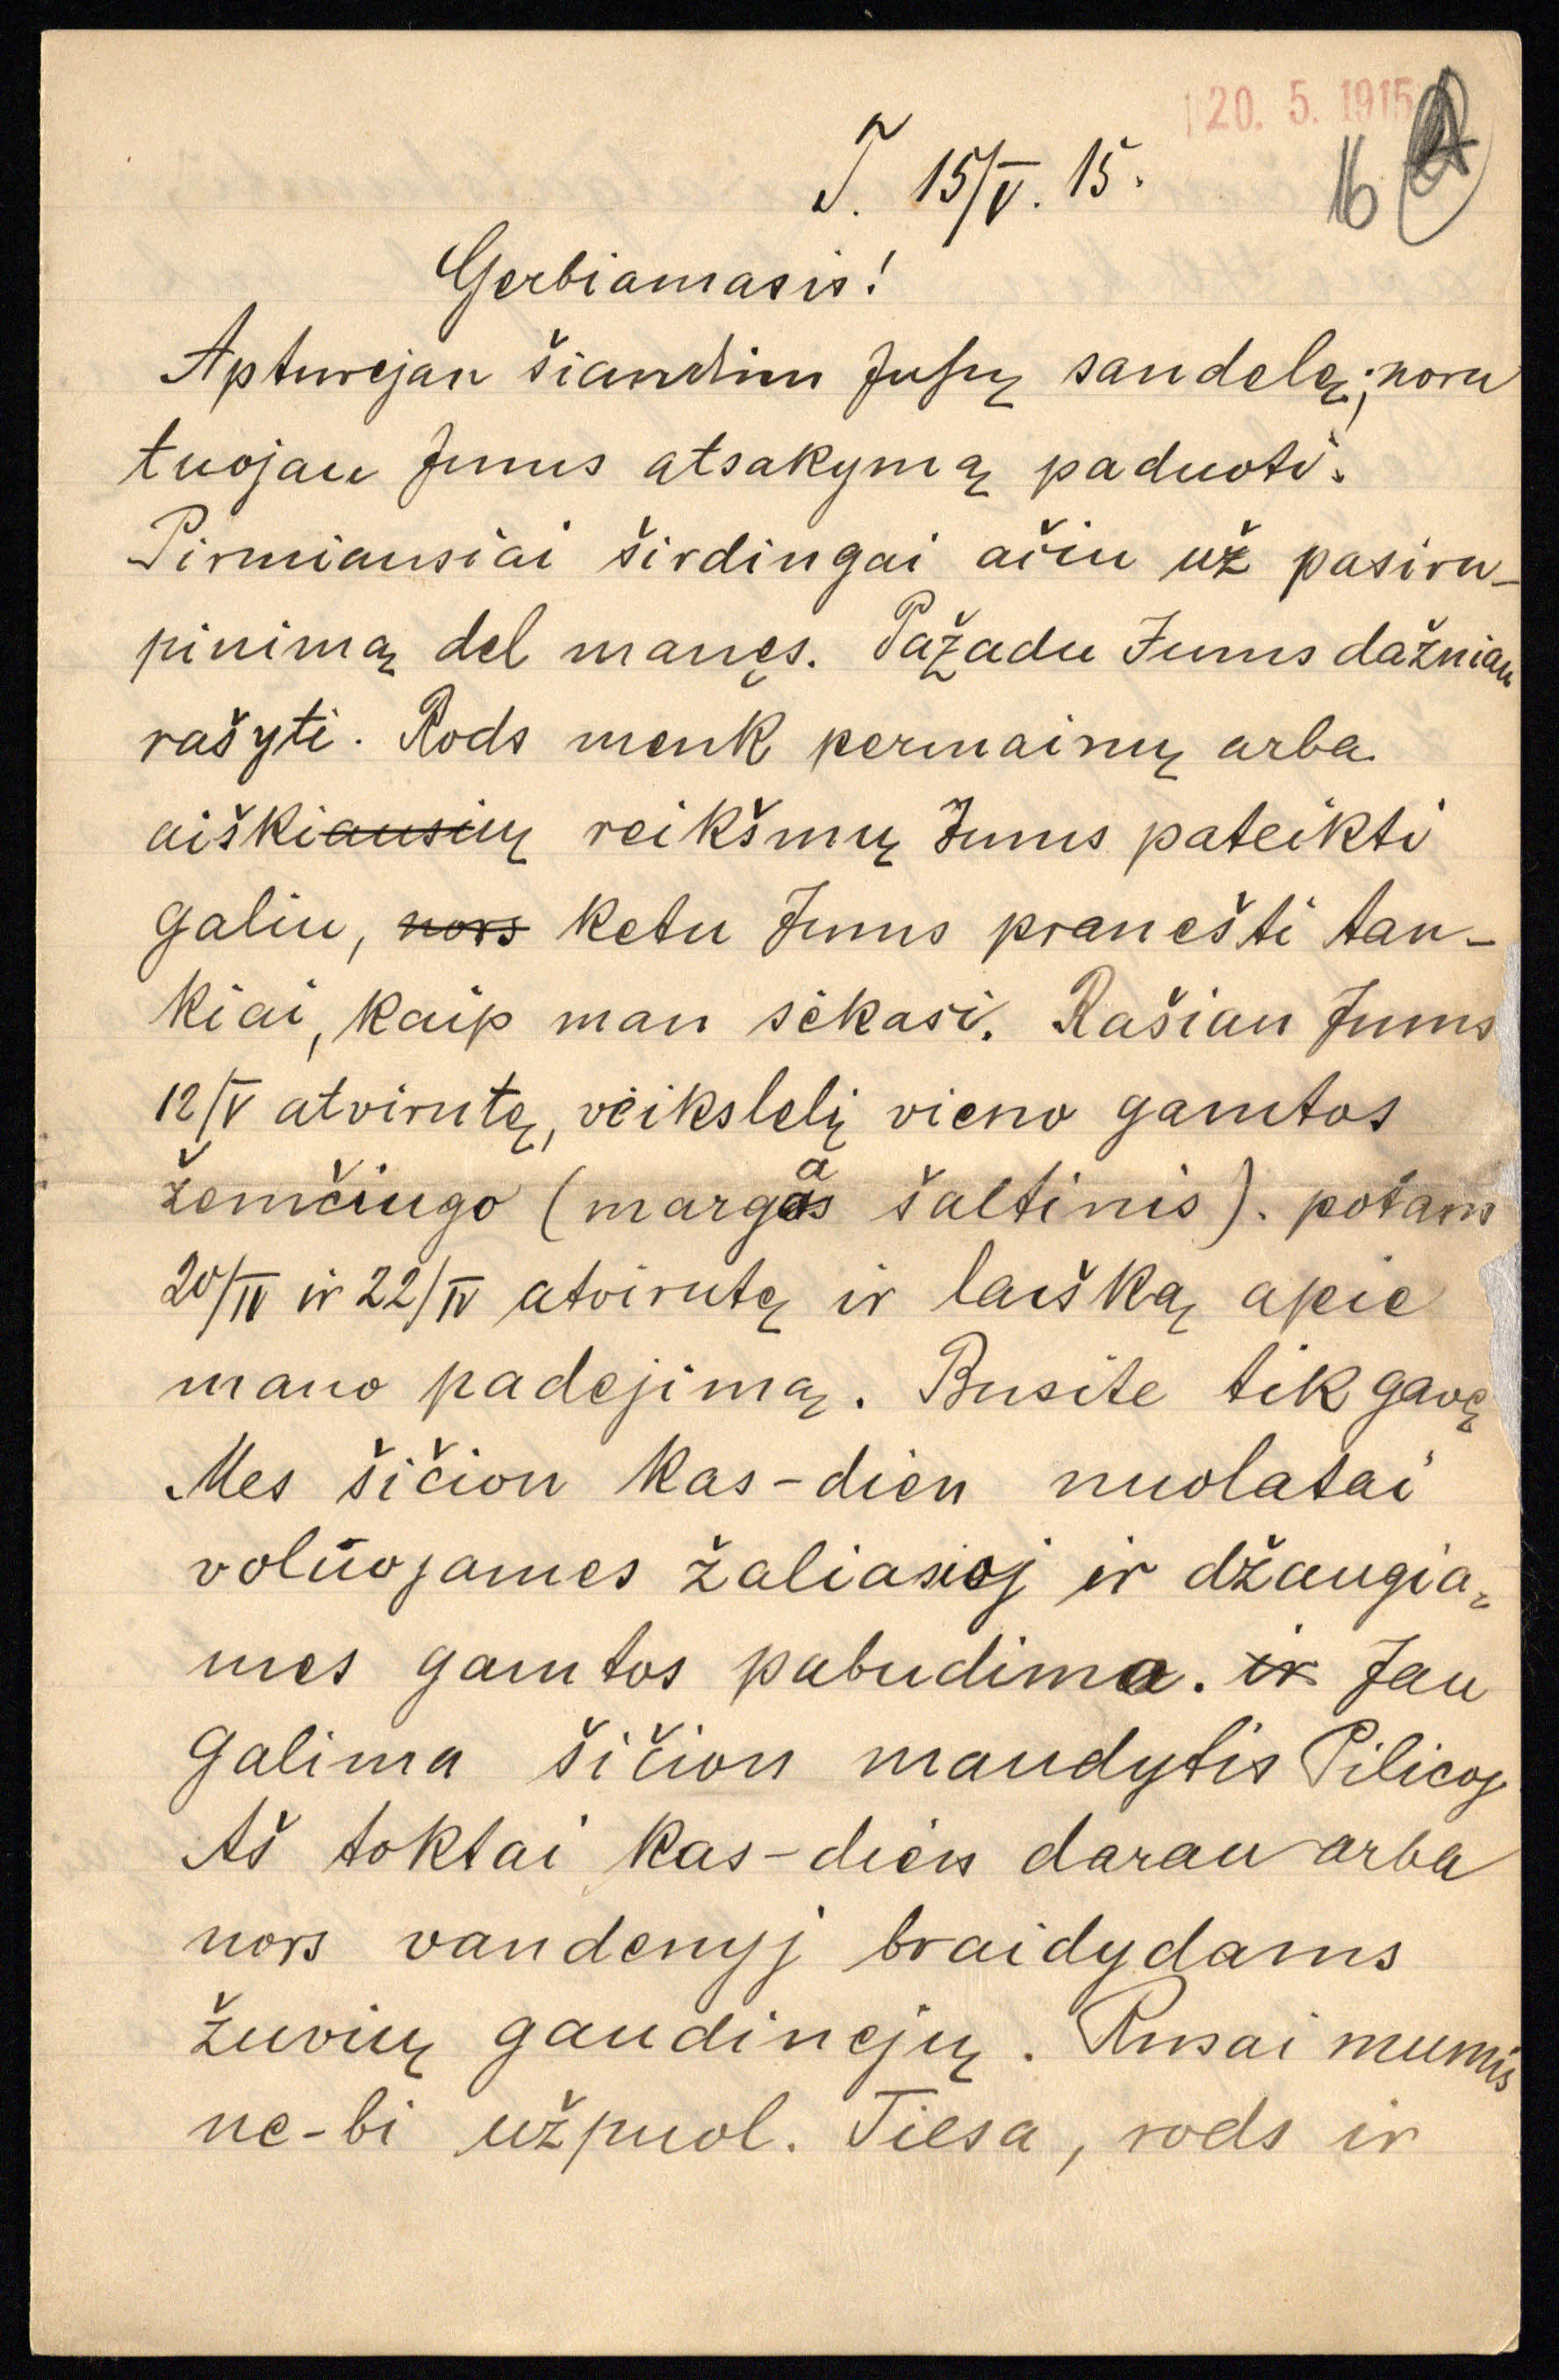 20. 5. 1915
16
T. 15/V. 15.
Gerbiamasis!
Apturejau šiandien Jusų sandelę; noru
tuojau Jums atsakymą paduoti.
Pirmiausiai širdingai ačiu už pasiru-
pinimą del manęs. Pažadu Jums dažniau
rašyti. Rods menk permainų arba
aiškiausių reikšmų Jums pateikti
galiu, nors ketu Jums pranešti tan-
kiai, kaip man sėkasi. Rašiau Jums
12/V atvirutę, veikslelį vieno gamtos
žemčiugo (margas šaltinis). potam
20/IV ir 22/IV atvirutę ir laišką apie
mano padejimą. Busite tik gavę
Mes šičion kas-dien nuolatai
voliuojames žaliasioj ir džaugia-
mes gamtos pabudima. ir Jau
galima šičion maudytis Pilicoj
Aš toktai kas-dien darau arba
nors vandenyj braidydams
žuvių gaudinejų. Rusai mumis
ne-bi užpuol. Tiesa, rods ir